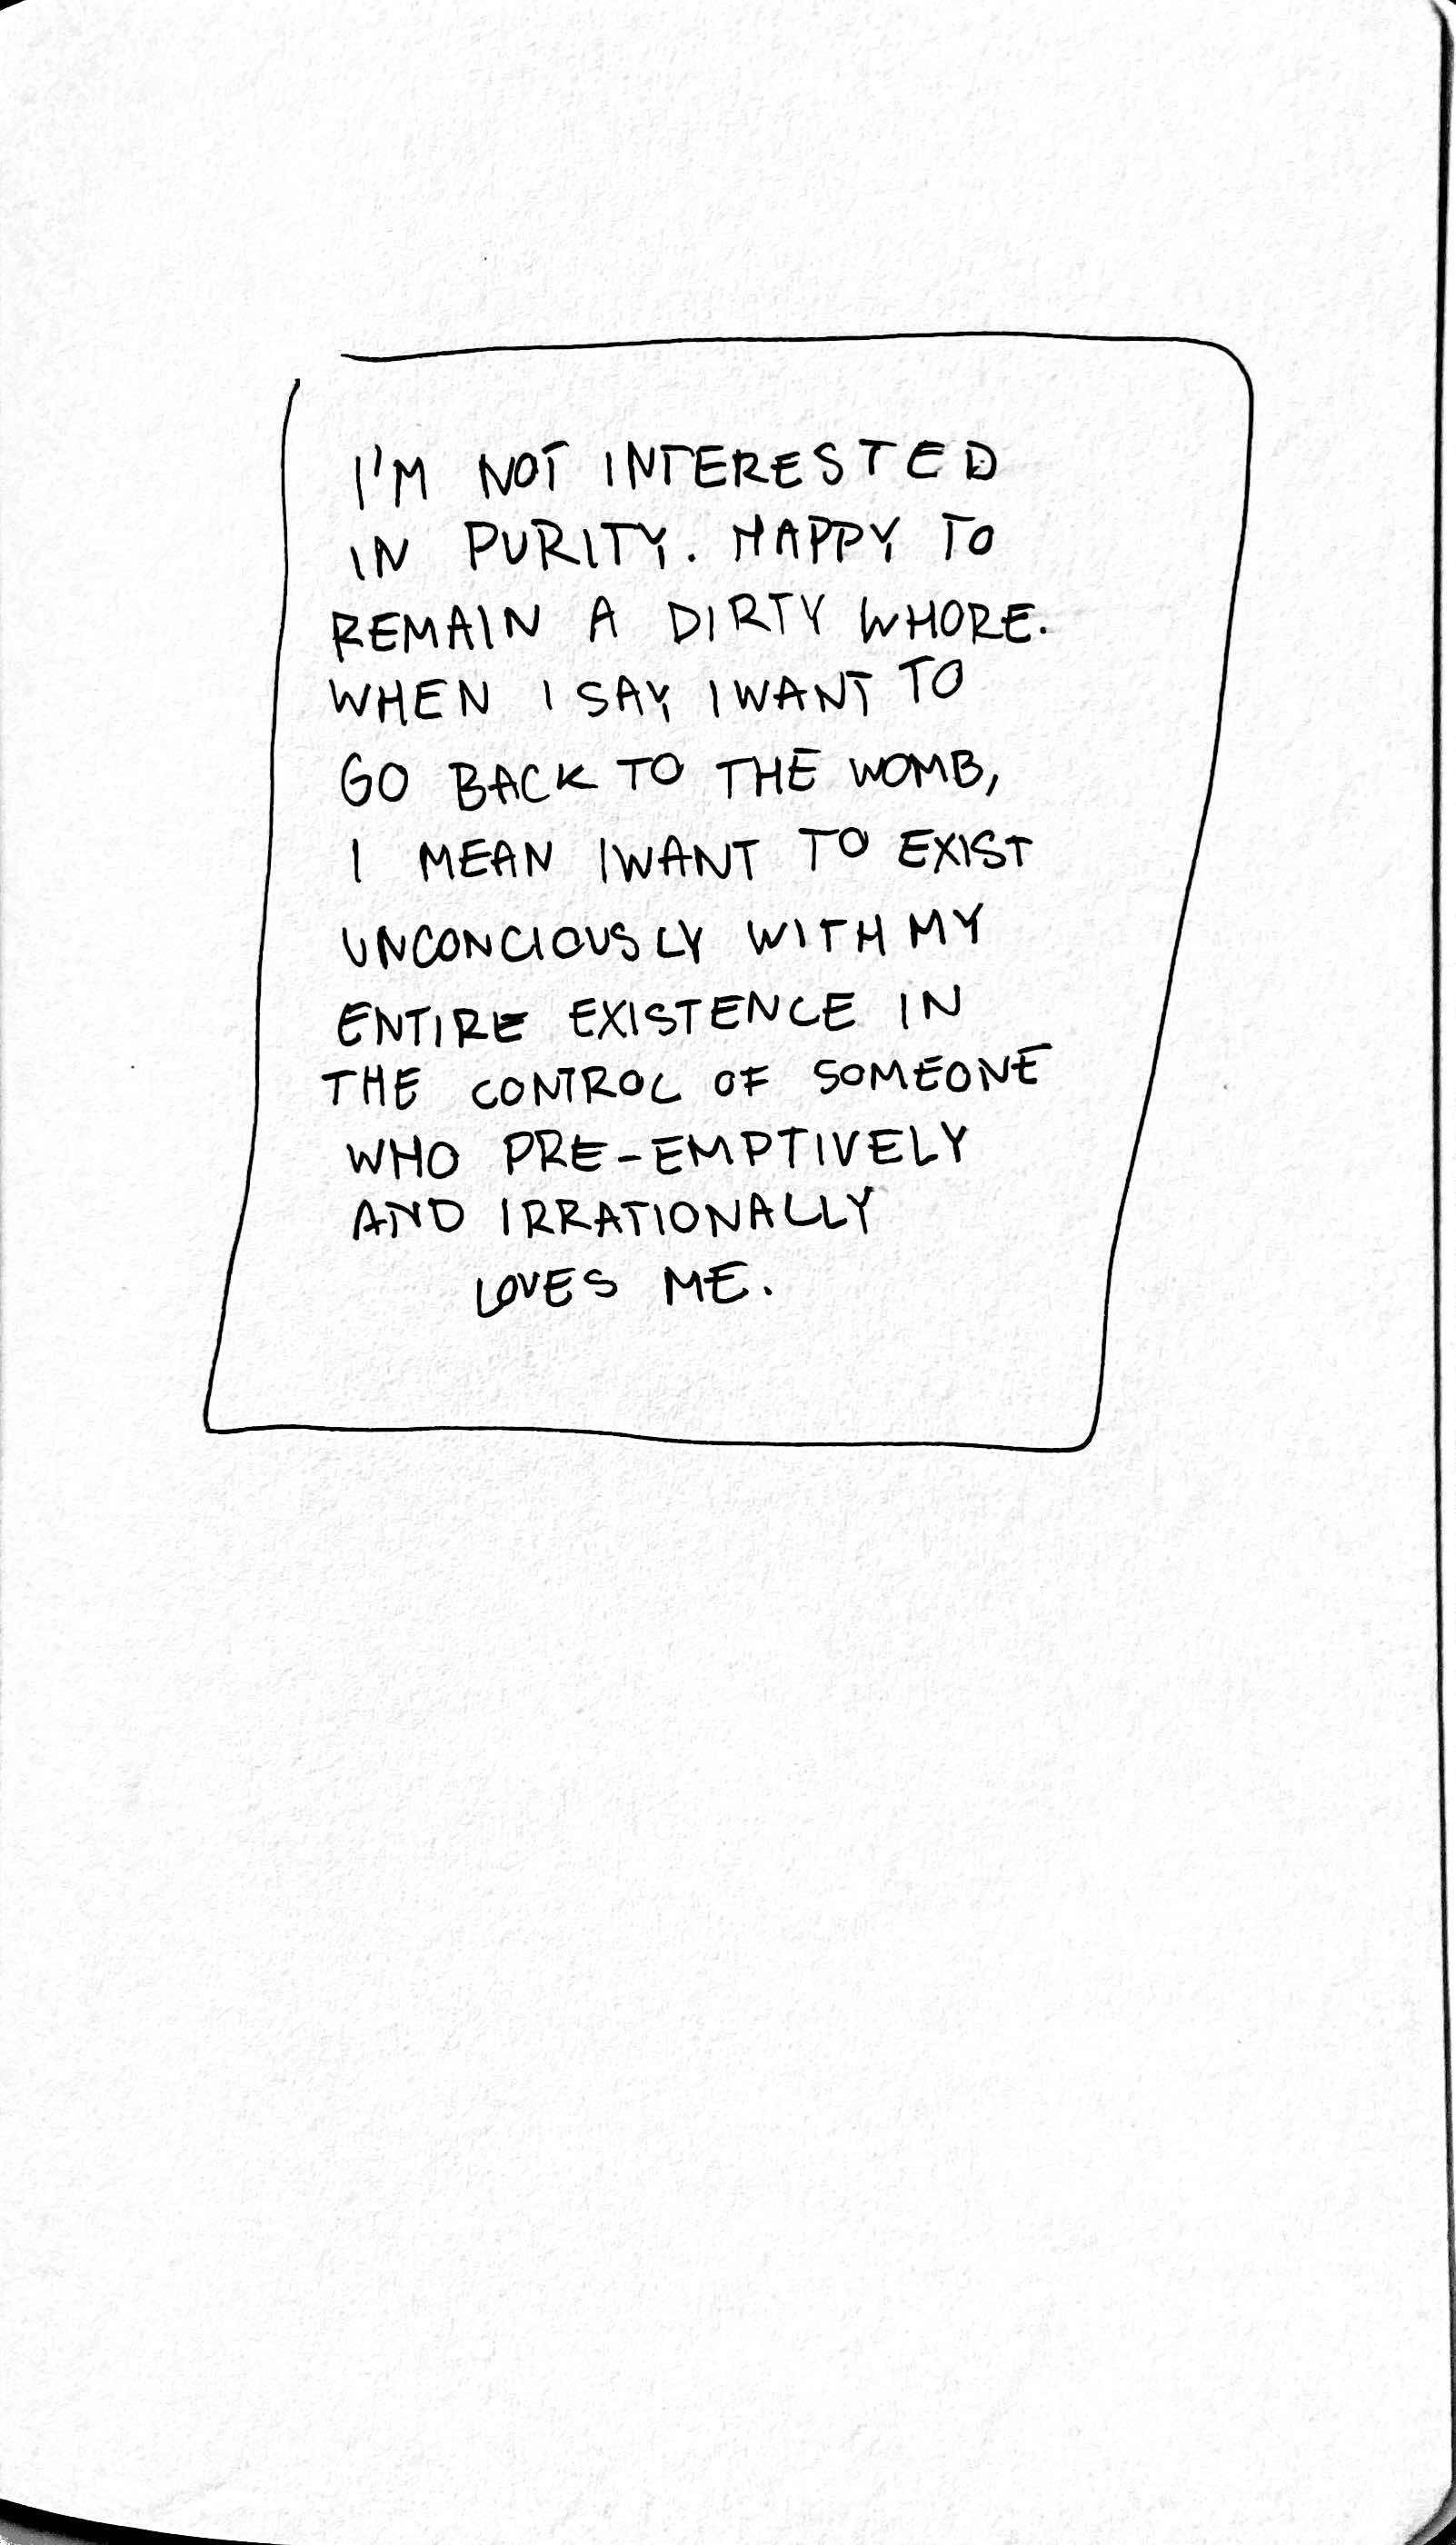 I'M NOT INTERESTED
IN PURITY. HAPPY TO
REMAIN A DIRTY WHORE.
WHEN I SAY I WANT TO
GO BACK TO THE WOMB,
I MEAN I WANT TO EXIST
UNCONCIOUSLY WITH MY
ENTIRE EXISTENCE IN
THE CONTROL OF SOMEONE
WHO PRE-EMPTIVELY
AND IRRATIONALLY
LOVES ME.